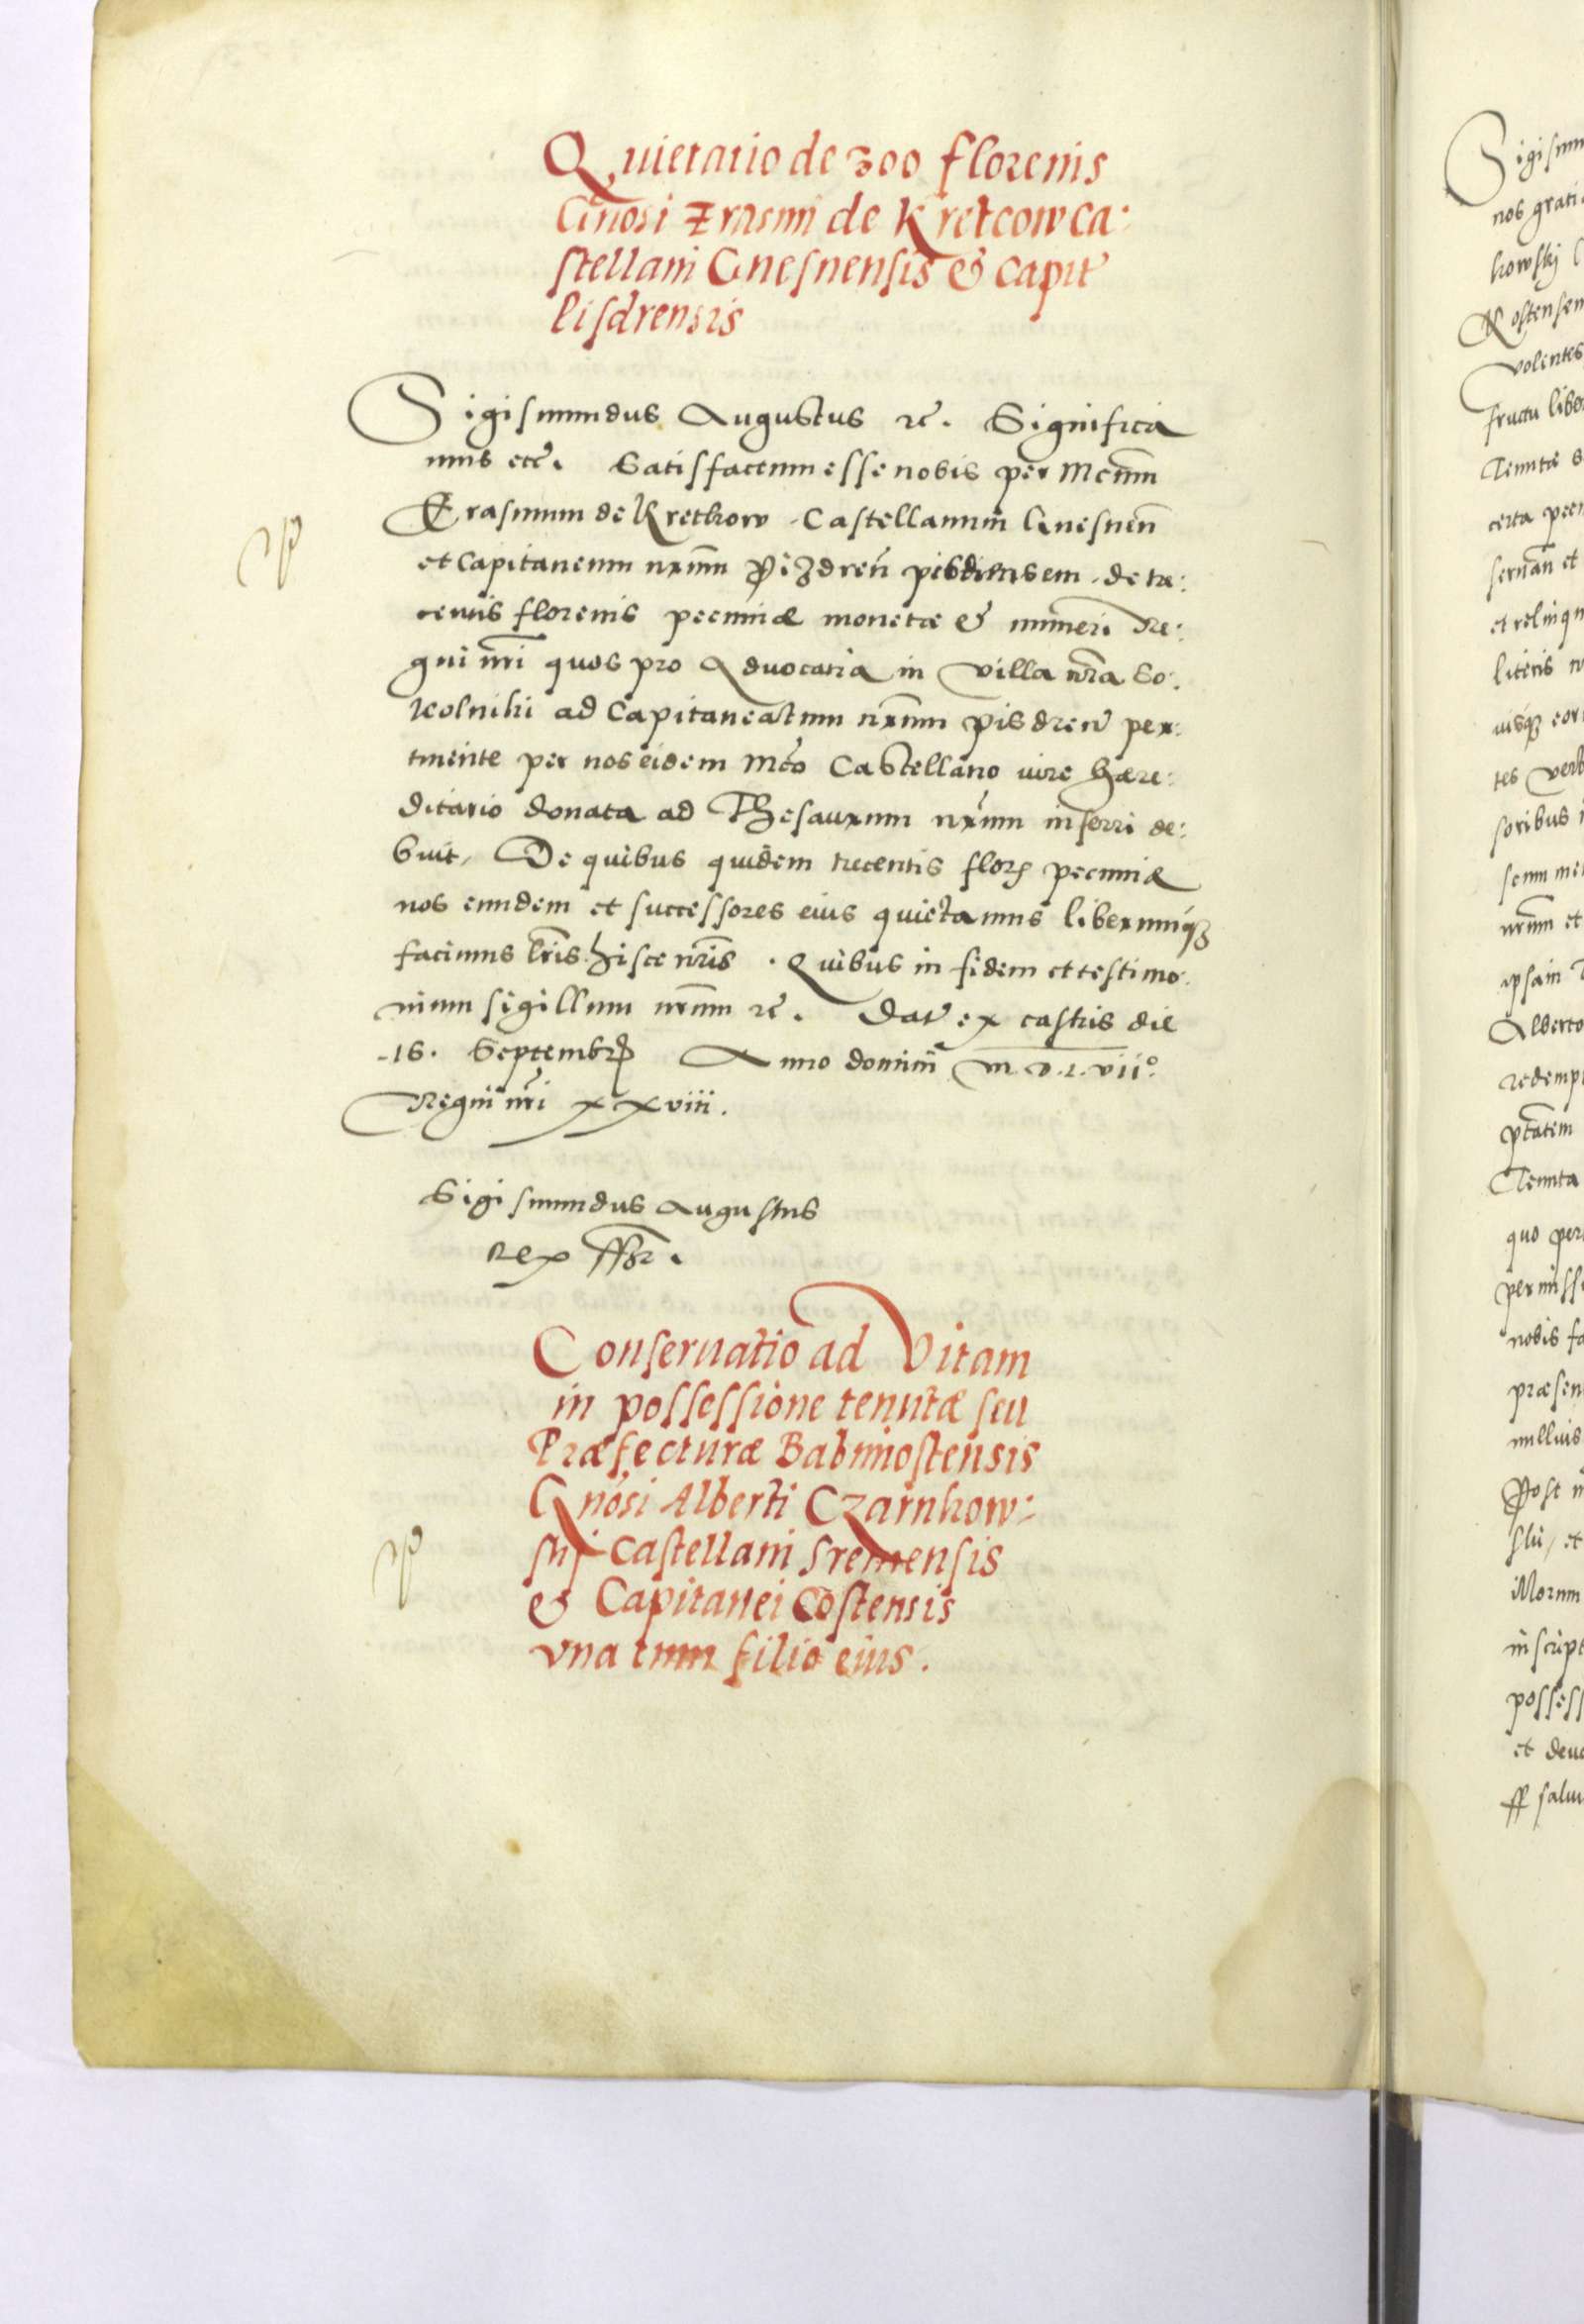 Quietatio de 300 florenis
Gnosi Erasmi de Kretcow Ca:
stellani Gnesnensis & Capit
Pisdrensis
Sigismundus Augustus rc. Significa
mus etc. Satisfactum esse nobis per Mcum
Erasmum de Kretkow Castellanum Gnesnen
et Capitaneum nrum Pizdren pisdrensem de tre:
centis florenis pecuniæ monetæ & numeri Re:
gni nri quos pro Aduocatia in villa nra So:
kolniki ad Capitaneatum nrum pisdren per:
tinente per nos eidem Mco Castellano iure hære:
ditario donata ad Thesaurum nrum inferri de:
buit, De quibus quidem trecentis flor pecuniæ
nos eundem et successores eius quietamus liberumq
facimus lris hisce nris. Quibus in fidem et testimo
nium sigillum nrum rc. Dat ex castris die
16. Septembr Anno domini M.D.L.vii°
Regni nri xxviii.
Sigismundus Augustus
Rex ssr.
Conseruatio ad Vitam
in possessione tenutæ seu
Præfecturæ Babimostensis
Gnosi Alberti Czarnkow:
skj Castellani Sremensis
& Capitanei Costensis
vna cum filio eius.
Sigismun
nos grati
kowskj
Kostensem
volentes
fructu liber
Tenutæ
certa pecu
seruan et
et relinqu
literis n
uisq eor
tes verb
soribus
seum me
nrum et
ipsam
Alberto
redemp
ptatem
Tenuta
quo per
permiss
nobis fa
præsen
nullius
Post
ski, et
illorum
inscript
possess
et deuo
ff saluis